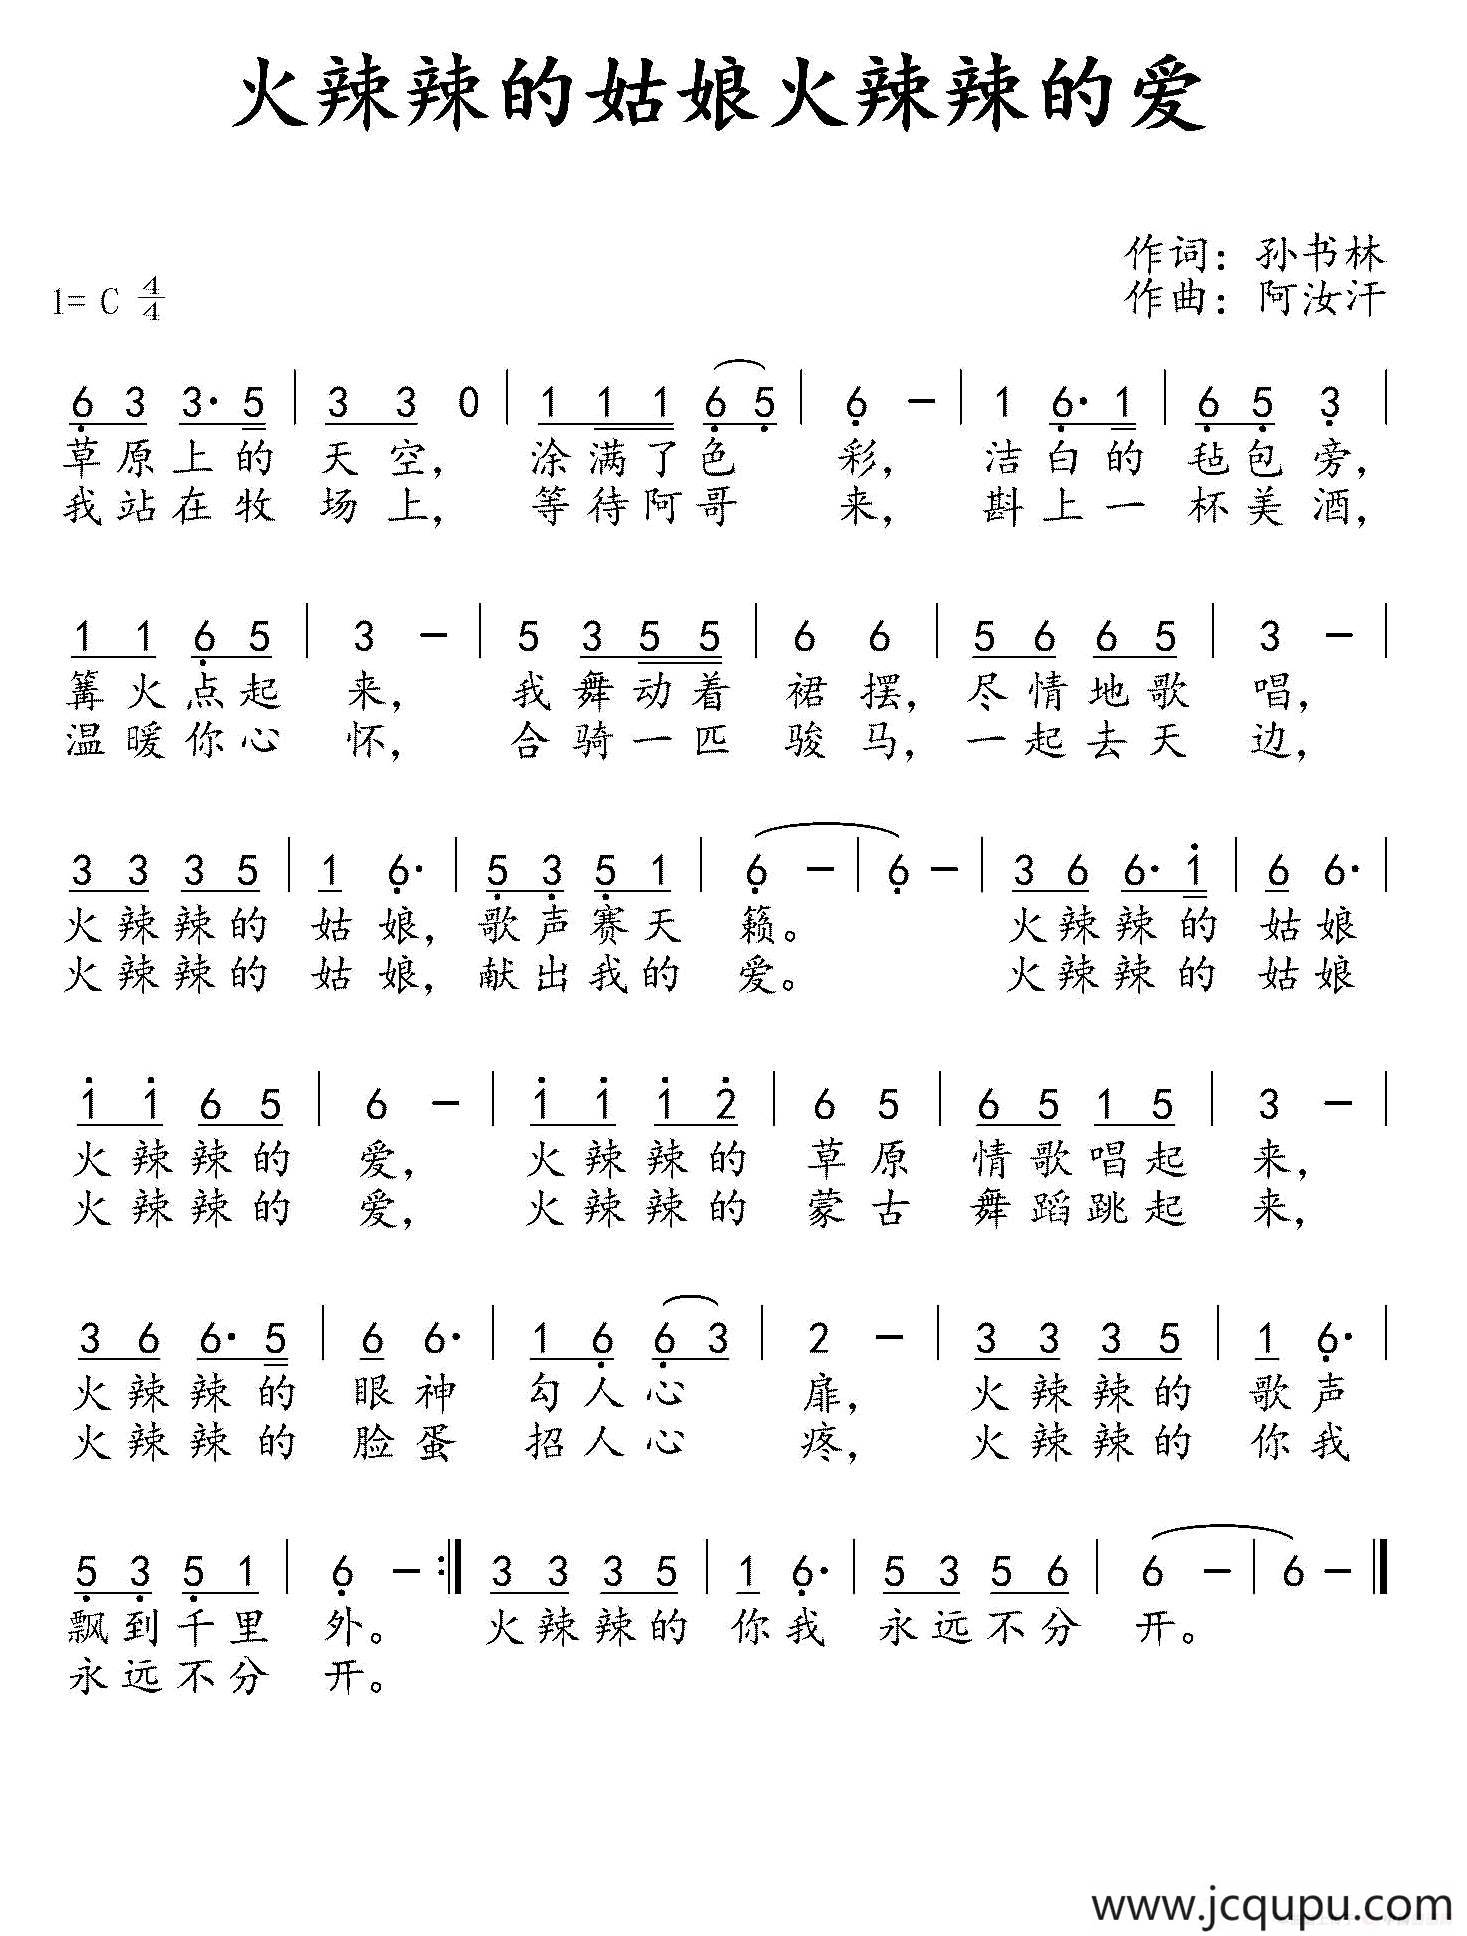 火辣辣的姑娘火辣辣的爱
作词：孙书林
1= C 4/4 作曲：阿汝汗
6 3 3· 5 | 3 3 0 | 1 1 1 6 5 | 6 – | 1 6· 1 | 6 5 3 |
草原上的 天空， 涂满了色 彩， 洁白的 毡包旁，
我站在牧 场上， 等待阿哥 来， 斟上一 杯美酒，
1 1 6 5 | 3 – | 5 3 5 5 | 6 6 | 5 6 6 5 | 3 – |
篝火点起 来， 我舞动着 裙摆， 尽情地歌 唱，
温暖你心 怀， 合骑一匹 骏马， 一起去天 边，
3 3 3 5 | 1 6· | 5 3 5 1 | 6 – | 6 – | 3 6 6· 1 | 6 6· |
火辣辣的 姑娘， 歌声赛天 籁。 火辣辣的 姑娘
火辣辣的 姑娘， 献出我的 爱。 火辣辣的 姑娘
1 1 6 5 | 6 – | 1 1 1 2 | 6 5 | 6 5 1 5 | 3 – |
火辣辣的 爱， 火辣辣的 草原 情歌唱起 来，
火辣辣的 爱， 火辣辣的 蒙古 舞蹈跳起 来，
3 6 6· 5 | 6 6· | 1 6 6 3 | 2 – | 3 3 3 5 | 1 6· |
火辣辣的 眼神 勾人心 扉， 火辣辣的 歌声
火辣辣的 脸蛋 招人心 疼， 火辣辣的 你我
5 3 5 1 | 6 – :| 3 3 3 5 | 1 6· | 5 3 5 6 | 6 – | 6 – |
飘到千里 外。 火辣辣的 你我 永远不分 开。
永远不分 开。
www.jcqupu.com